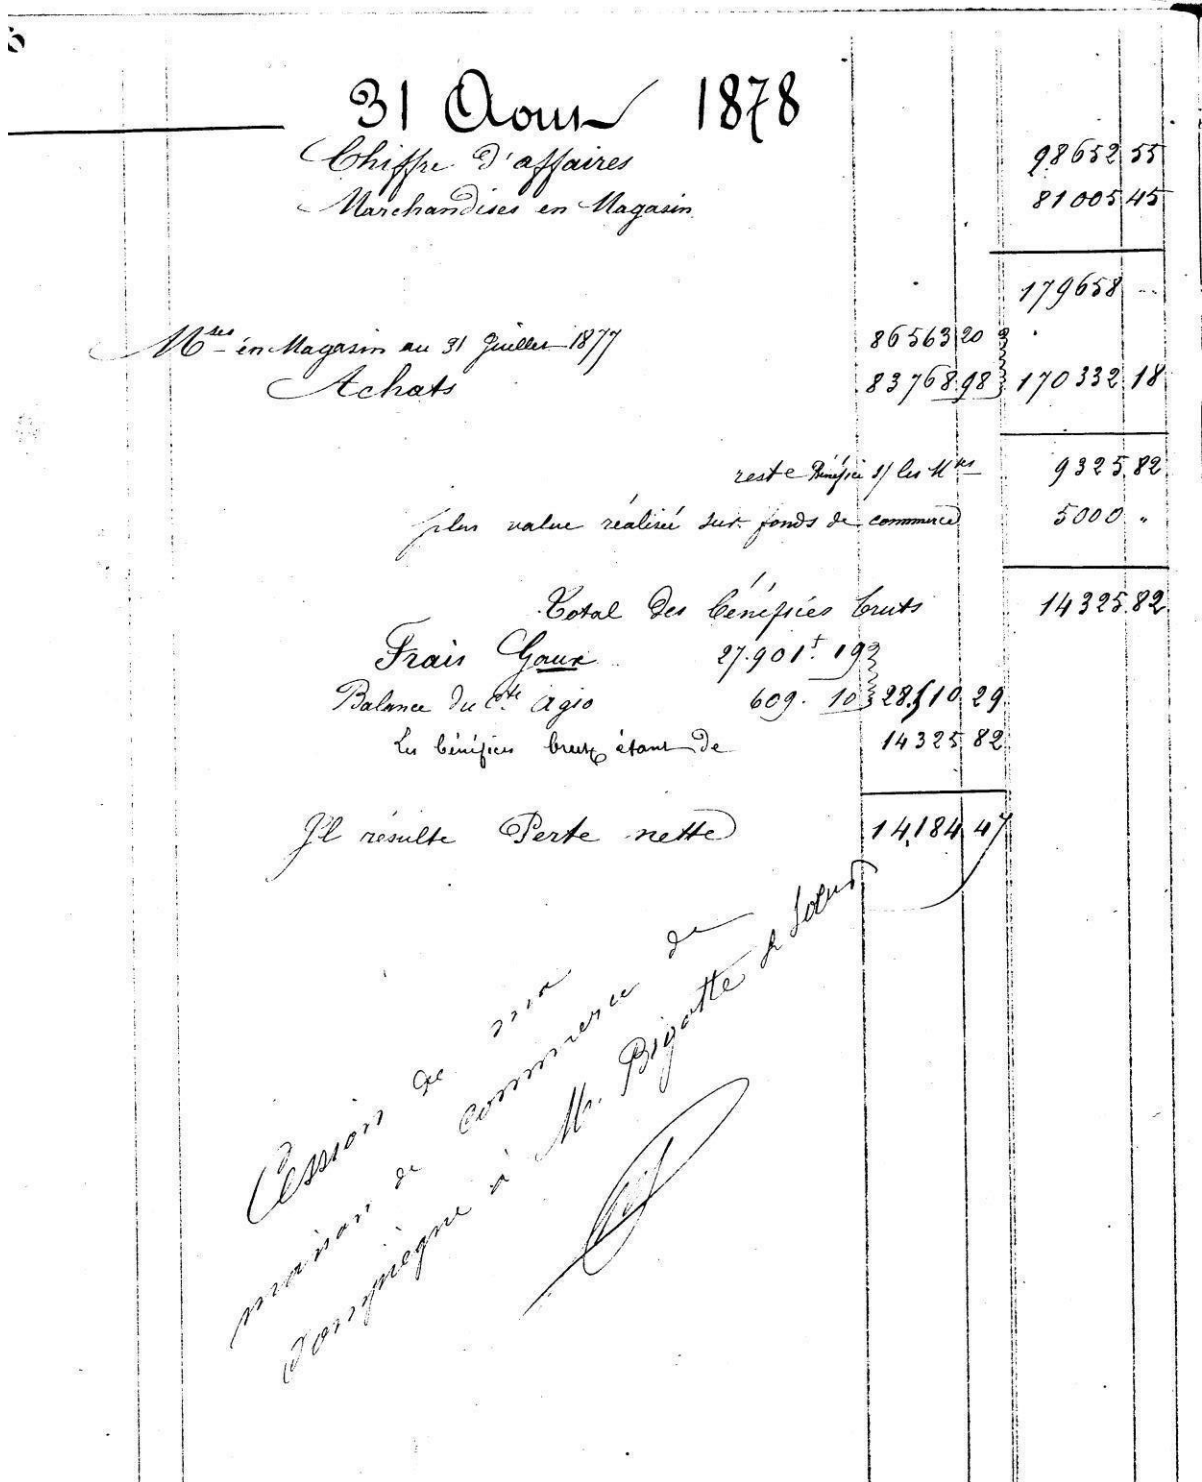 31 Aout 1878
Chiffre d'affaires 98652 55
Marchandises en Magasin 81005 45
179658 "
Mses en Magasin au 31 Juillet 1877 86563 20
Achats 83768 98 170332 18
reste Bénéfice s/ les Mses 9325 82
plus value réalisée sur fonds de commerce 5000 "
Total des bénéfices bruts 14325 82
Frais Gaux 27.901f. 19
Balance du Cte agio 609. 10 28510 29
Les bénéfices bruts étant de 14325 82
Il résulte Perte nette 14,184 47
Cession de ma
maison de commerce de
Compiègne à Mr. Bigotte &